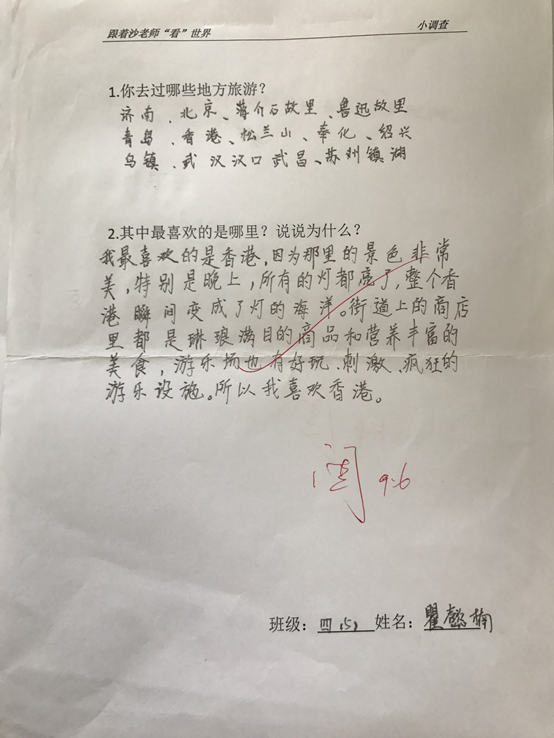 跟着沙老师“看”世界 小调查
1.你去过哪些地方旅游？
济南、北京、蒋介石故里、鲁迅故里
青岛、香港、松兰山、奉化、绍兴
乌镇、武汉汉口武昌、苏州镇湖
2.其中最喜欢的是哪里？说说为什么？
我最喜欢的是香港，因为那里的景色非常
美，特别是晚上，所有的灯都亮了，整个香
港瞬间变成了灯的海洋。街道上的商店
里都是琳琅满目的商品和营养丰富的
美食，游乐场也有好玩、刺激、疯狂的
游乐设施。所以我喜欢香港。
阅 9.6
班级：四（5） 姓名：瞿懿楠